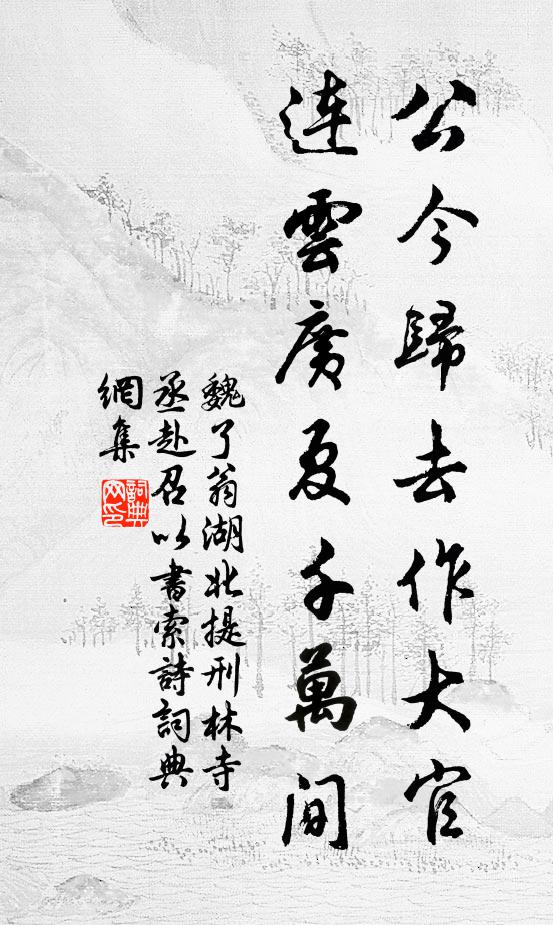 公今歸去作大官
連雲廣夏千萬間
魏了翁湖北提刑林寺
丞赴召以書索詩詞典
網集
詞典
网记